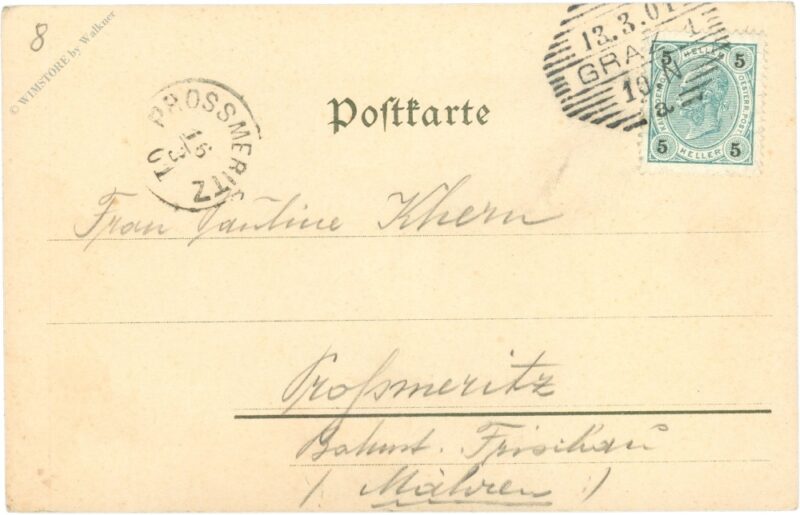 8
© WIMSTORE by Walkner
13.3.01
GRAZ 1
10 N
5 HELLER 5
OESTERR. POST
5 HELLER 5
PROSSMERITZ
Postkarte
Frau Pauline Khern
Proßmeritz
Bahnst. Frischau
(Mähren)